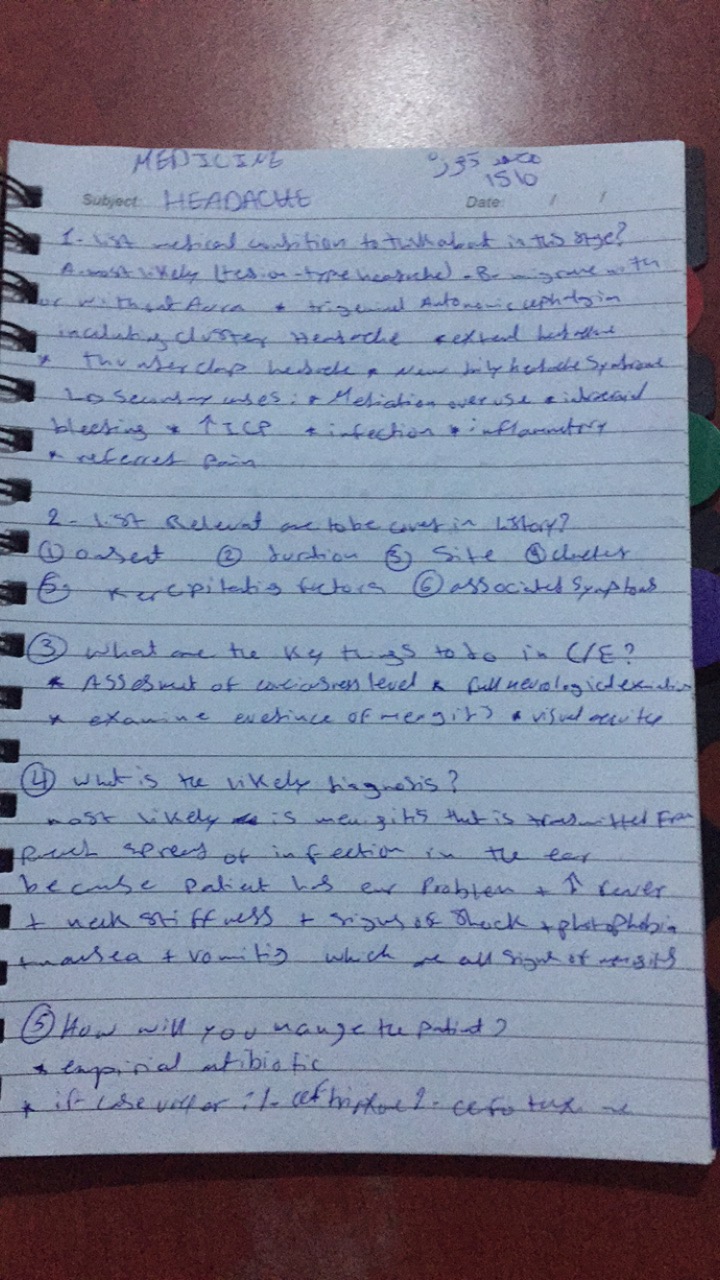 MEDICINE
1510
Subject: HEADACHE Date: / /
1- List medical condition to think about in this stge?
A- most likely (tesion-type headache) - B- migrane with
or without Aura * trigeminal Autonomic cephalgia
including cluster Headache *
* thunder clap headache * New daily headache Syndrome
Secondary causes: * Medication over use *
bleeting * ↑ICP * infection * inflammetory
* referred pain
2- List Relevant are to be cover in history?
① onset ② duration ③ Site ④
⑤ factors ⑥ associated Symptoms
③ What are the Key things to do in C/E?
* Assesmut of level * full neurological
* examine evidince of * visual
④ What is the likely diagnosis?
most likely is that is transmitted From
spread of infection in the ear
because patient has ear Problem + ↑ fever
+ neck stiffness + signs of shock + photophobia
+ nausea + vomiting which are all sign of
⑤ How will you mange the patient?
* antibiotic
* if case 1- 2-